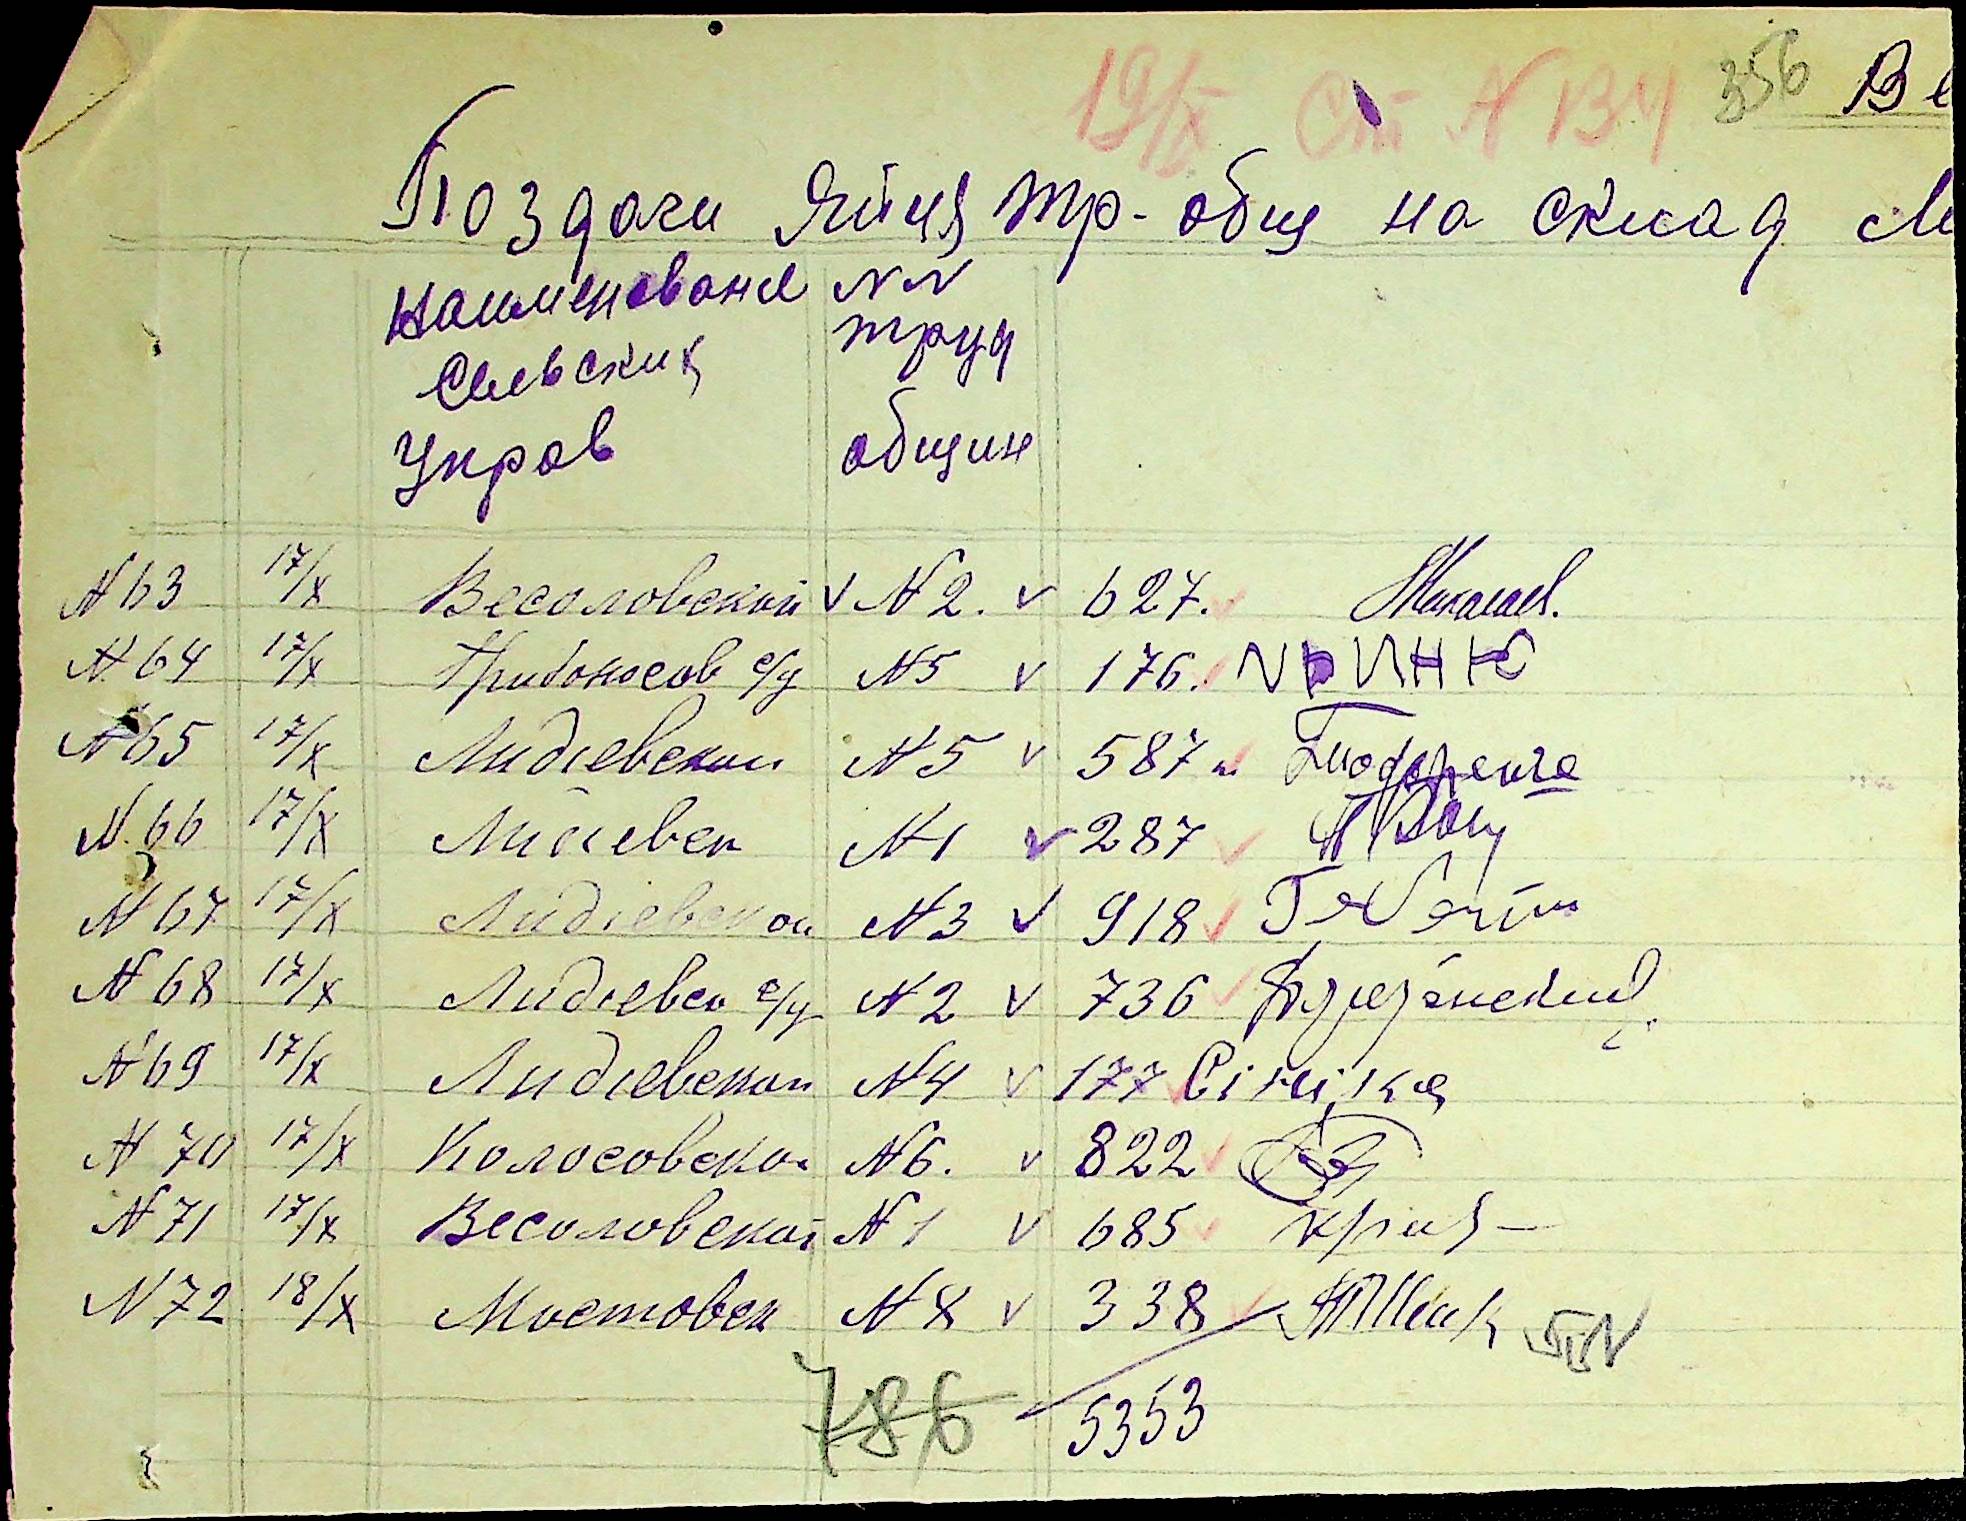 19/X Ст N 134 356 Ве
По здачи Яйця тр-общ на склад М
Наименоване NN
Сельских труд
Управ общин
N63 17/X Весоловской √ N2. √ 627.
N64 17/X Кривоносов с/у N5 √ 176.
N65 17/X Лидіевской N5 √ 587
N66 17/X Лидіевск N1 √ 287
N67 17/X Лидіевской N3 √ 918
N68 17/X Лидіевск с/у N2 √ 736
N69 17/X Лидіевской N4 √ 177 Сініка
N70 17/X Колосовской N6. √ 822
N71 17/X Весоловской N1 √ 685
N72 18/X Мостовск N8 √ 338
786 5353